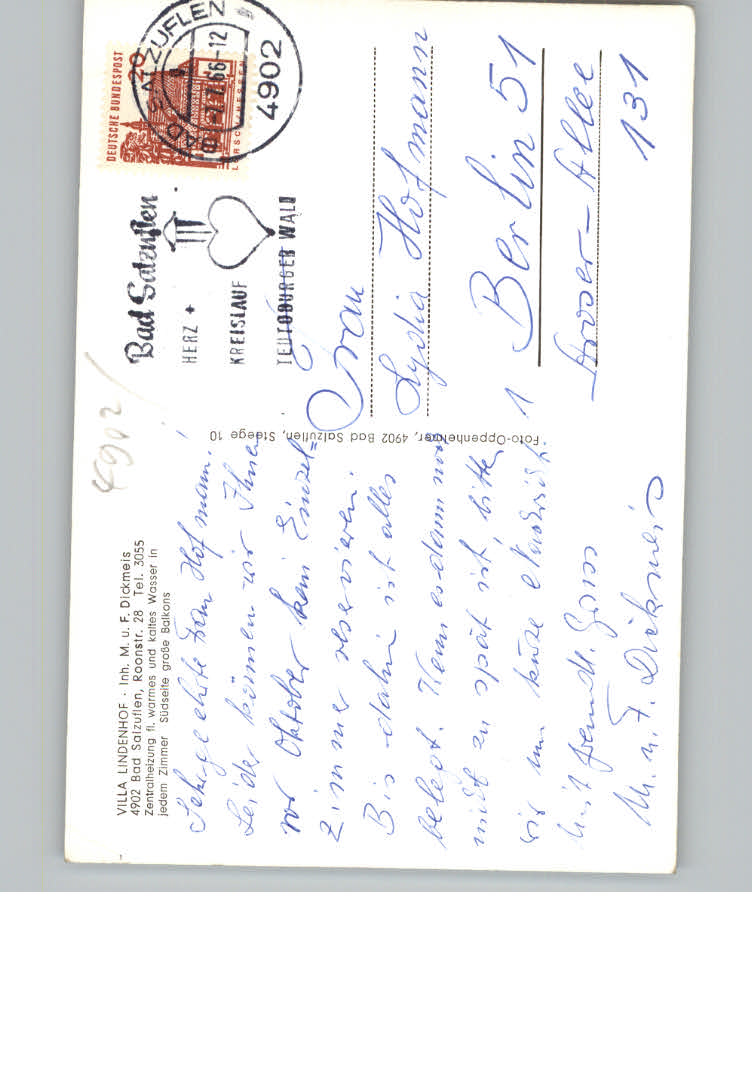 VILLA LINDENHOF · Inh. M. u. F. Dickmeis
4902 Bad Salzuflen, Roonstr. 28 Tel. 3055
Zentralheizung fl. warmes und kaltes Wasser in
jedem Zimmer Südseite große Balkons
Sehr geehrte Frau Hofmann!
Leider können wir Ihnen
vor Oktober kein Einzel=
zimmer reservieren.
Bis dahin ist alles
belegt. Wenn es dann noch
nicht zu spät ist, bitte
wir um kurze Nachricht.
Mit freundl. Gruss
M. u. F. Dickmeis
Foto-Oppenheimer, 4902 Bad Salzuflen, Steege 10
4902
Bad Salzuflen
HERZ +
KREISLAUF
TEUTOBURGER WALD
DEUTSCHE BUNDESPOST
20
LORSCH HESSEN
BAD SALZUFLEN
4902
Frau
Lydia Hofmann
1 Berlin 51
Aroser-Allee
131